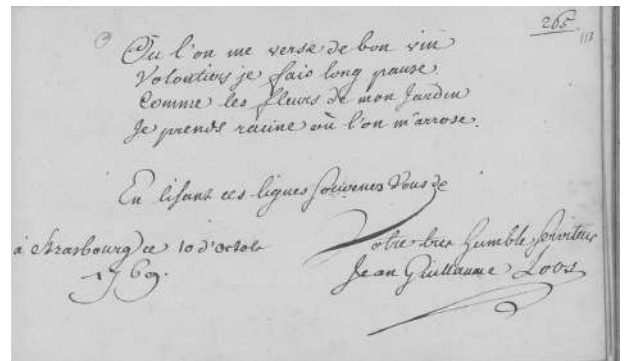 265
113
Où l'on me verse de bon vin
Volontiers je fais long pause
Comme les fleurs de mon Jardin
Je prends racine où l'on m'arrose.
En lisant ces lignes souvenes Vous de
à Strasbourg ce 10 d'Octobr
Votre tres humble serviteur
1769.
Jean Guillaume Loos